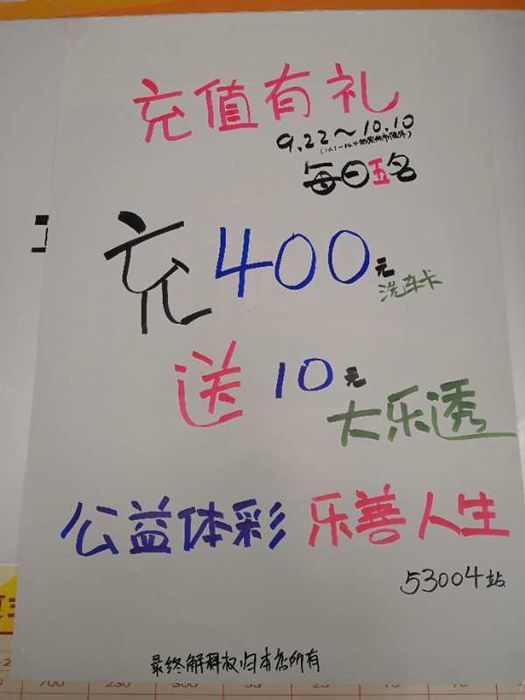 充值有礼
9.22~10.10
每日五名
充400元
洗车卡
送10元
大乐透
公益体彩 乐善人生
53004站
最终解释权归本店所有